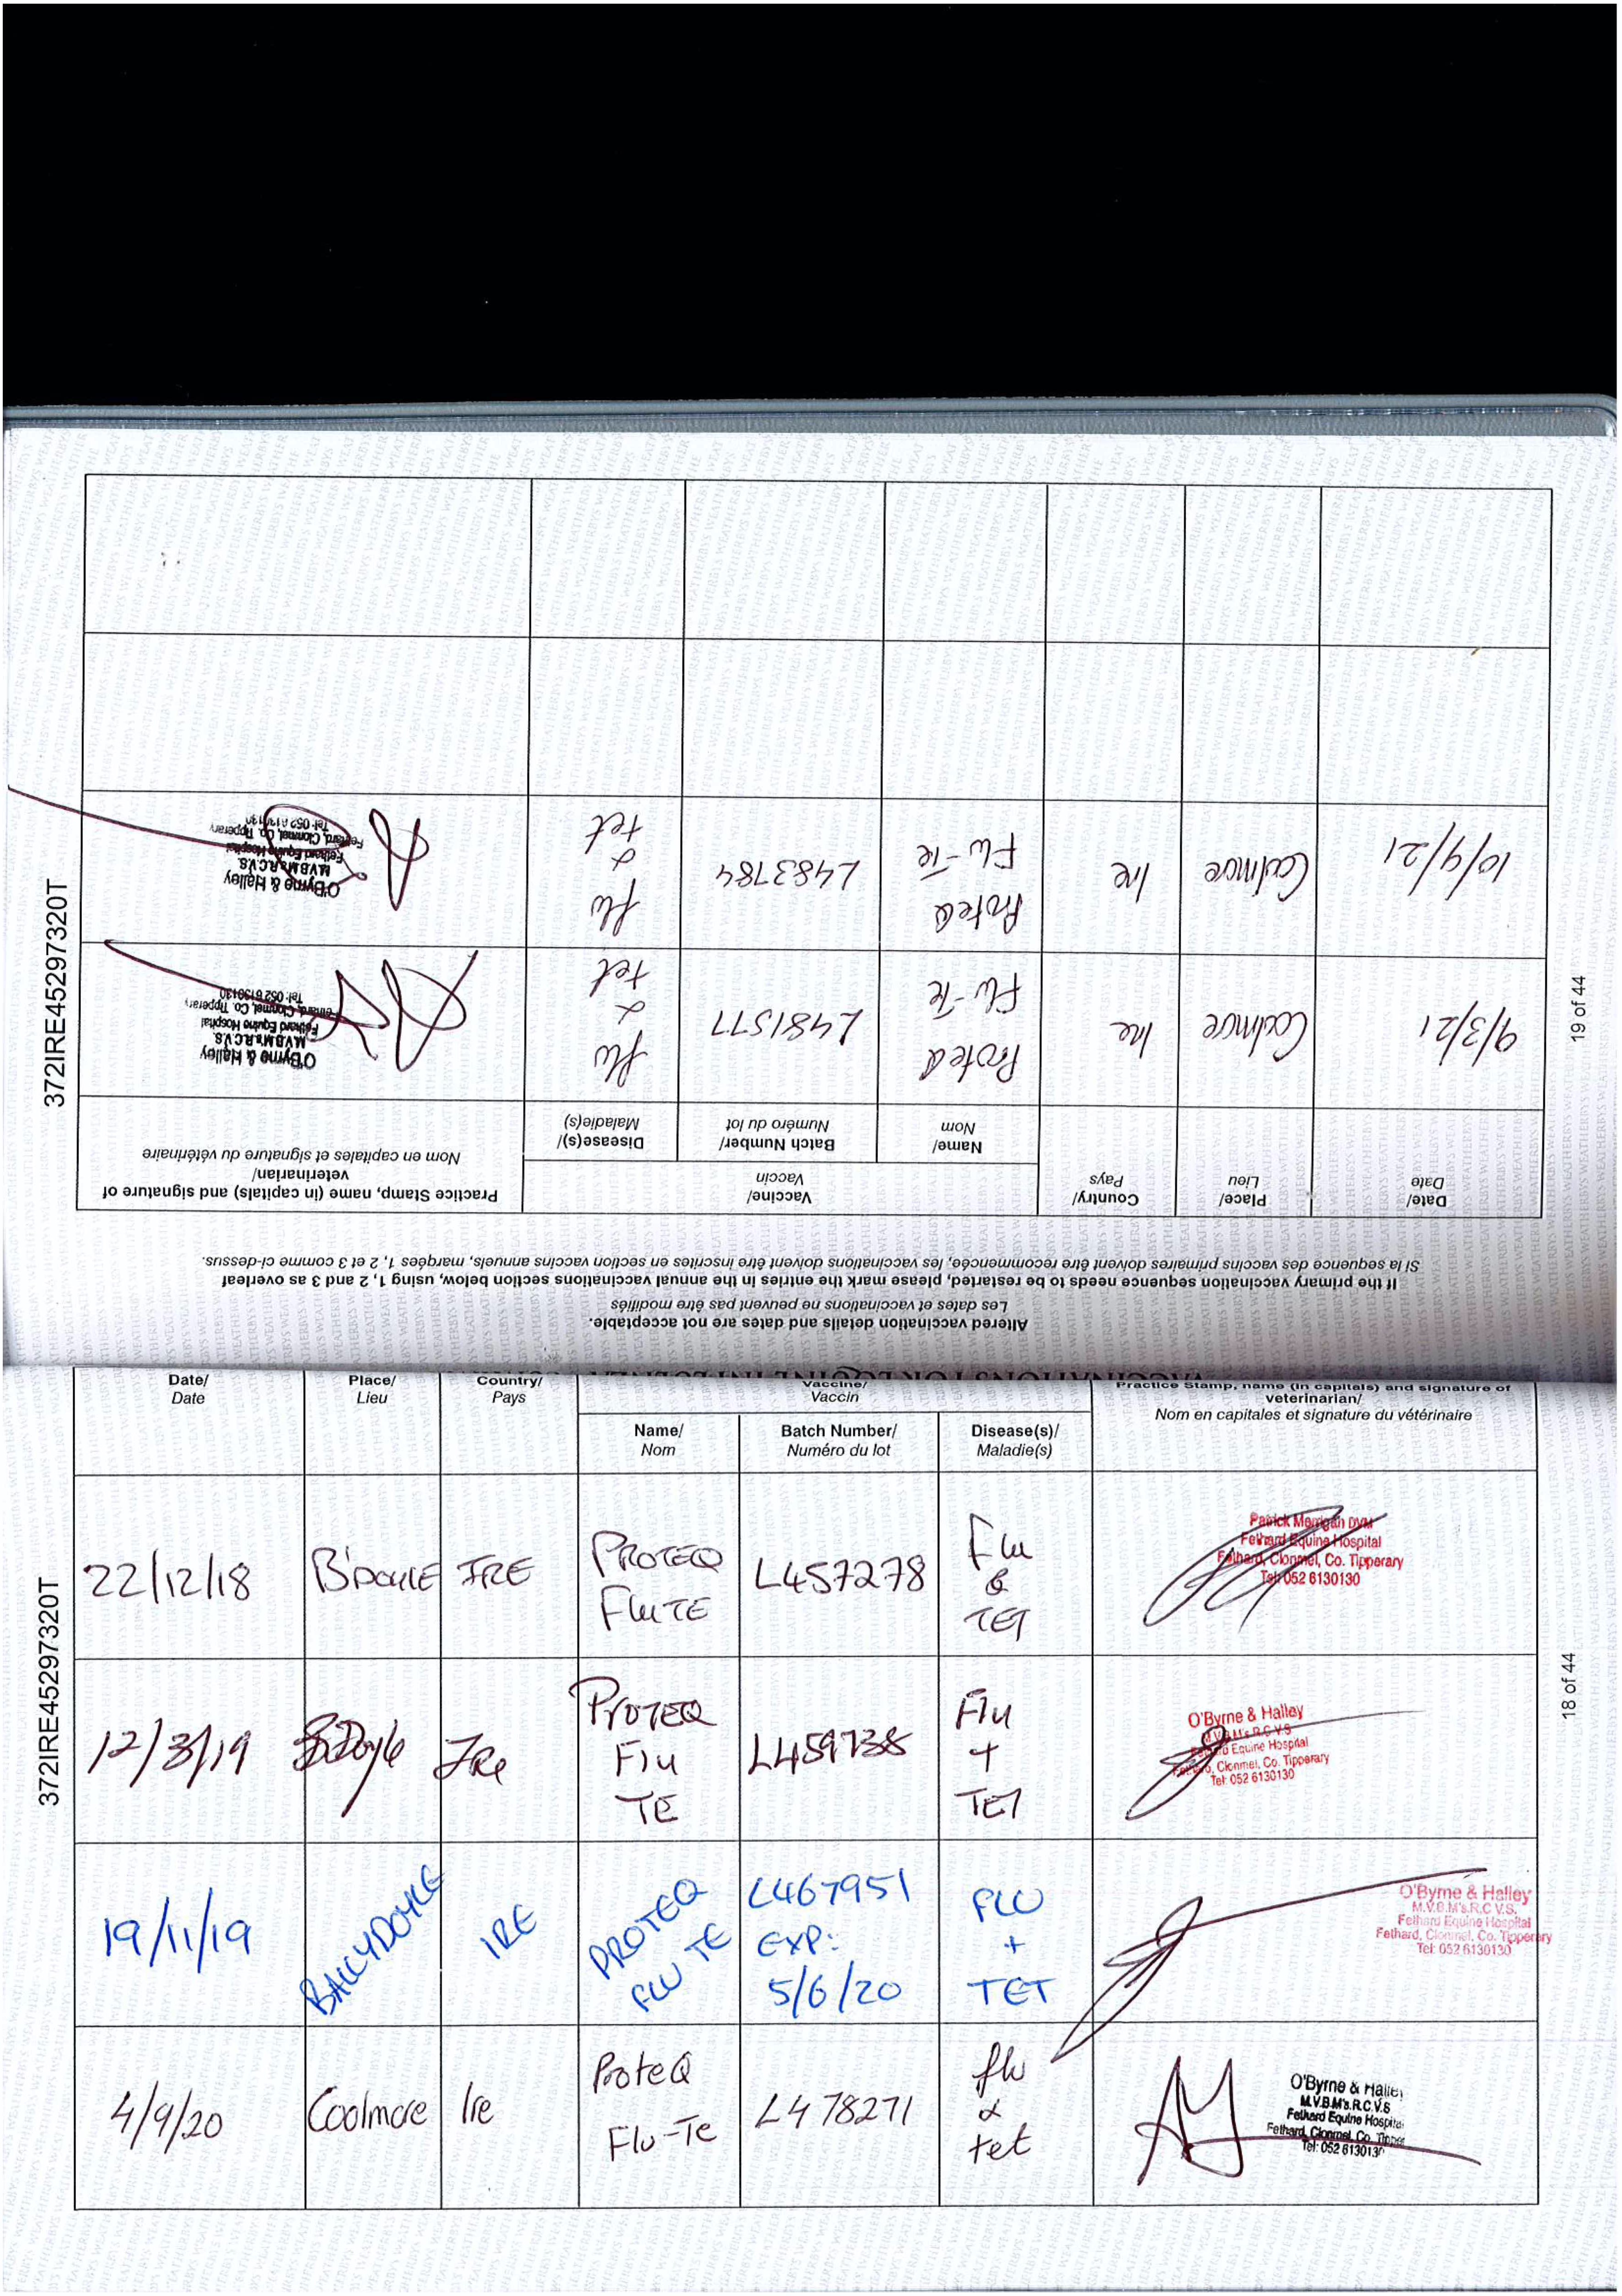 372IRE45297320T
18 of 44
Date/
Date
Place/
Lieu
Country/
Pays
Vaccine/
Vaccin
Name/
Nom
Batch Number/
Numéro du lot
Disease(s)/
Maladie(s)
Practice Stamp, name (in capitals) and signature of
veterinarian/
Nom en capitales et signature du vétérinaire
22/12/18
B'DOYLE
IRE
PROTEQ
Flu TE
L457278
Flu
&
TET
Patrick Merrigan DVM
Fethard Equine Hospital
Fethard, Clonmel, Co. Tipperary
Tel: 052 6130130
12/3/19
B'Doyle
IRe
ProTEQ
Flu
TE
L459738
Flu
+
TET
O'Byrne & Halley
M.V.B.M's.R.C.V.S
Equine Hospital
Clonmel, Co. Tipperary
Tel: 052 6130130
19/11/19
BALLYDOYLE
IRE
PROTEQ
FLU TE
L467951
EXP:
5/6/20
FLU
+
TET
O'Byrne & Halley
M.V.B.M's.R.C V.S.
Fethard Equine Hospital
Fethard, Clonmel, Co. Tipperary
Tel: 052 6130130
4/9/20
Coolmore
Ire
ProteQ
Flu-Te
L478271
flu
&
tet
O'Byrne & Halley
M.V.B.M's.R.C.V.S
Fethard Equine Hospital
Fethard, Clonmel, Co. Tipper
Tel: 052 6130130
372IRE45297320T
19 of 44
Altered vaccination details and dates are not acceptable.
Les dates et vaccinations ne peuvent pas être modifiés
If the primary vaccination sequence needs to be restarted, please mark the entries in the annual vaccinations section below, using 1, 2 and 3 as overleaf
Si la sequence des vaccins primaires doivent être recommencée, les vaccinations doivent être inscrites en section vaccins annuels, marqées 1, 2 et 3 comme ci-dessus.
Date/
Date
Place/
Lieu
Country/
Pays
Vaccine/
Vaccin
Name/
Nom
Batch Number/
Numéro du lot
Disease(s)/
Maladie(s)
Practice Stamp, name (in capitals) and signature of
veterinarian/
Nom en capitales et signature du vétérinaire
9/3/21
Coolmore
Ire
ProteQ
Flu-Te
L481577
flu
&
tet
O'Byrne & Halley
M.V.B.M's.R.C.V.S.
Fethard Equine Hospital
Fethard, Clonmel, Co. Tipperary
Tel: 052 6130130
10/9/21
Coolmore
Ire
ProteQ
Flu-Te
L483784
flu
&
tet
O'Byrne & Halley
M.V.B.M's.R.C.V.S.
Fethard Equine Hospital
Fethard, Clonmel, Co. Tipperary
Tel: 052 6130130